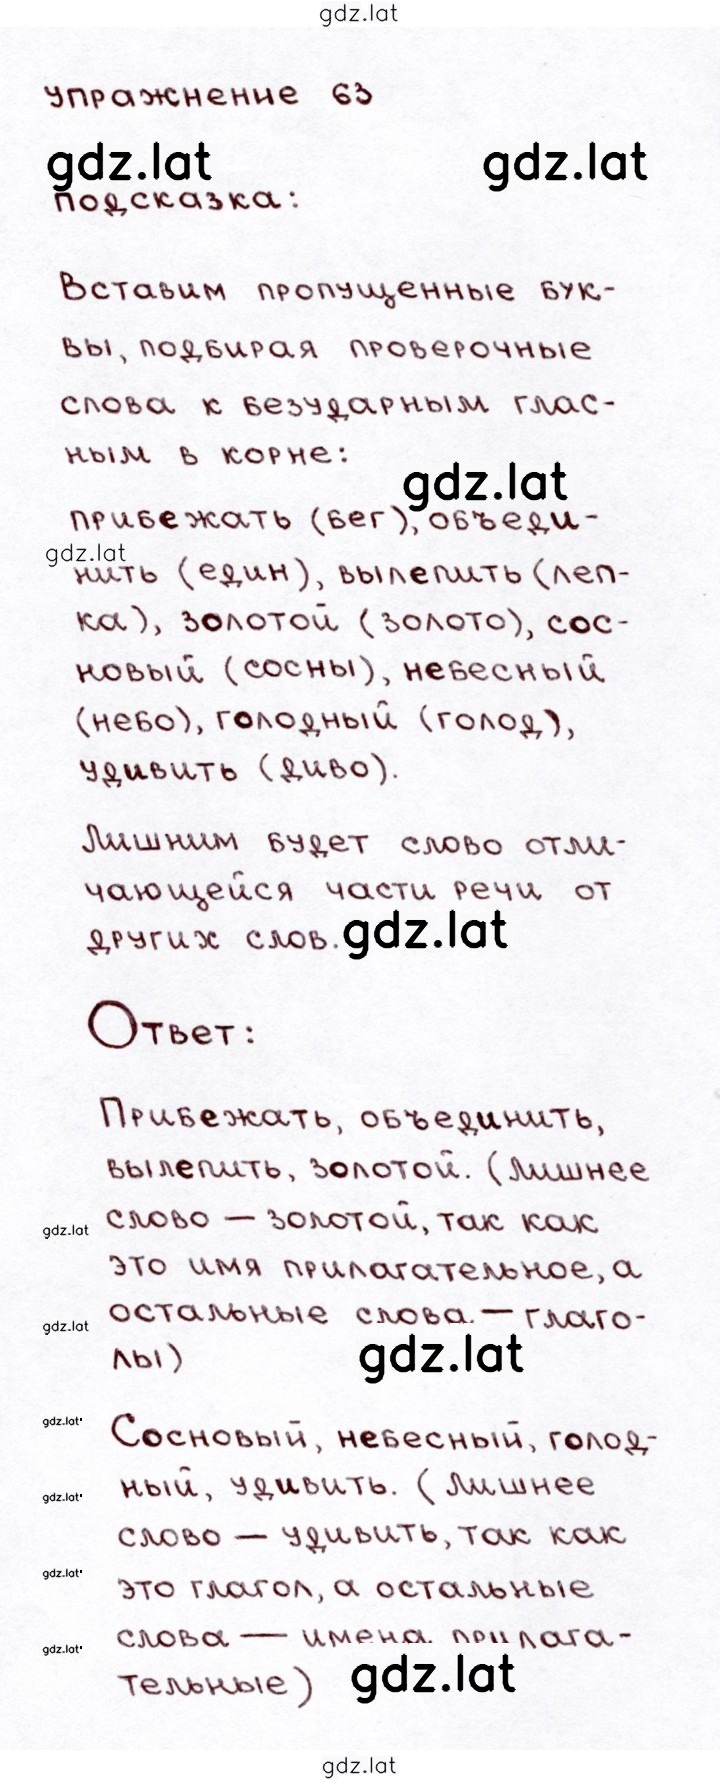 gdz.lat
упражнение 63
gdz.lat gdz.lat
подсказка:
Вставим пропущенные бук-
вы, подбирая проверочные
слова к безударным глас-
ным в корне:
gdz.lat
прибежать (бег), объеди-
gdz.lat
нить (един), вылепить (леп-
ка), золотой (золото), сос-
новый (сосны), небесный
(небо), голодный (голод),
удивить (диво).
Лишним будет слово отли-
чающейся части речи от
других слов. gdz.lat
Ответ:
Прибежать, объединить,
вылепить, золотой. (Лишнее
gdz.lat слово — золотой, так как
это имя прилагательное, а
gdz.lat остальные слова — глаго-
лы) gdz.lat
gdz.lat Сосновый, небесный, голод-
gdz.lat ный, удивить. (Лишнее
слово — удивить, так как
gdz.lat это глагол, а остальные
gdz.lat слова — имена прилага-
тельные) gdz.lat
gdz.lat